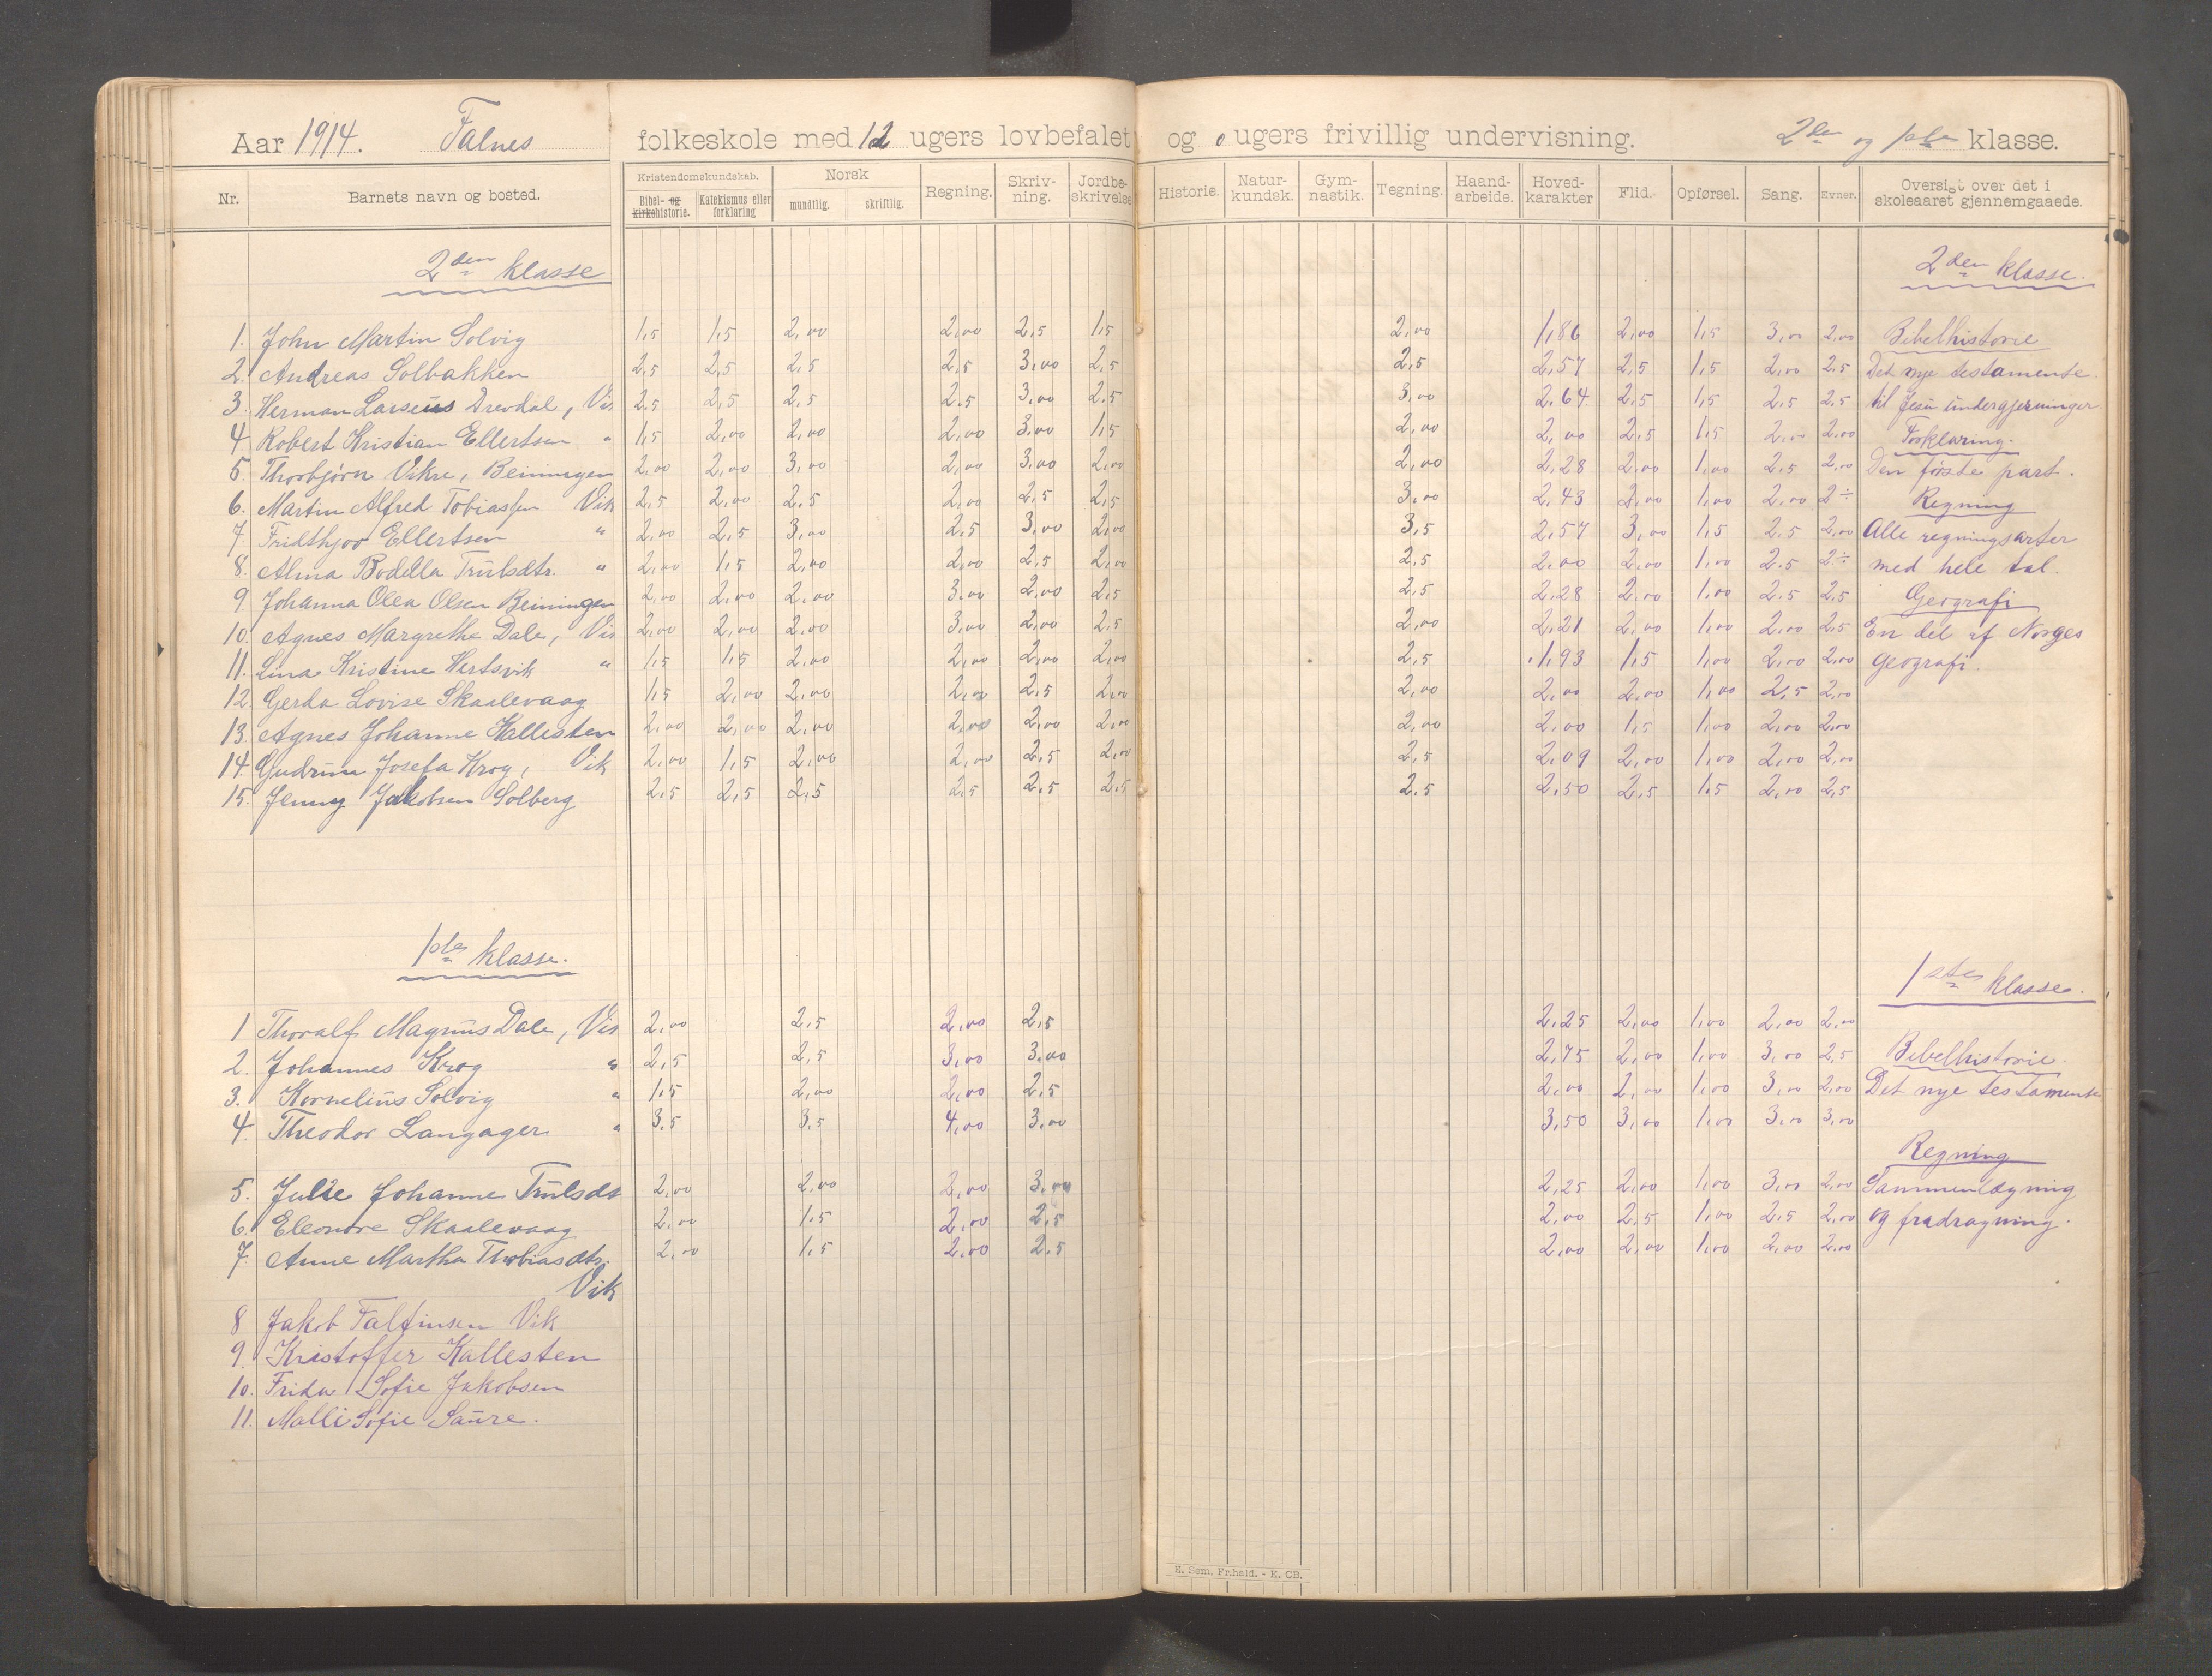 Aar 1914. Falnes folkeskole med 12 ugers lovbefalet og 0 ugers frivillig undervisning. 2de og 1ste klasse.
Nr. Barnets navn og bosted. Kristendomskundskab. Bibel- og kirkehistorie. Katekismus eller forklaring Norsk mundtlig. skriftlig. Regning. Skriv-ning. Jordbe-skrivelse Historie. Natur-kundsk. Gym-nastik. Tegning. Haand-arbeide. Hoved-karakter Flid. Opførsel. Sang. Evner. Oversigt over det i skoleaaret gjennemgaaede.
2den klasse 2den klasse.
1. John Martin Solvig 1,5 1,5 2,00 2,00 2,5 1,5 2,00 1,86 2,00 1,5 3,00 2,00 Bibelhistorie
2. Andreas Solbakken 2,5 2,5 2,5 2,5 3,00 2,5 2,5 2,57 2,5 1,5 2,00 2,5 Det nye testamente
3. Herman Larseus Drevdal, Vik 2,5 2,5 2,5 2,5 3,00 2,5 3,00 2,64 2,5 1,5 2,5 2,5 til Jesu undergjerninger
4. Robert Kristian Ellertsen " 1,5 2,00 2,00 2,00 3,00 1,5 2,00 2,00 2,5 1,5 2,00 2,00 Forklaring.
5. Thorbjørn Vikre, Beiningen 2,00 2,00 3,00 2,00 3,00 2,00 2,00 2,28 2,00 1,00 2,5 2,00 Den første part.
6. Martin Alfred Tobiassen Vik 2,5 2,00 2,5 2,00 2,5 2,5 3,00 2,43 2,00 1,00 2,00 2÷ Regning
7. Fridthjov Ellertsen " 2,00 2,5 3,00 2,5 3,00 2,00 3,5 2,57 3,00 1,5 2,5 2,00 Alle regningsarter
8. Alma Bodella Trulsdtr. " 2,00 1,5 2,00 2,00 2,5 2,00 2,5 2,00 2,00 1,00 2,5 2÷ med hele tal.
9. Johanna Olea Olsen Beiningen 2,00 2,00 2,00 3,00 2,00 2,5 2,5 2,28 2,00 1,00 2,5 2,5 Geografi
10. Agnes Margrethe Dale, Vik 2,00 2,00 2,00 3,00 2,00 2,5 2,00 2,21 2,00 1,00 2,00 2,5 En del af Norges
11. Lina Kristine Hertsvik " 1,5 1,5 2,00 2,00 2,00 2,00 2,5 1,93 1,5 1,00 2,00 2,00 geografi.
12. Gerda Lovise Skaalevaag 1,5 2,00 2,00 2,00 2,5 2,00 2,00 2,00 2,00 1,00 2,5 2,00
13. Agnes Johanne Kallesten 2,00 2,00 2,00 2,00 2,00 2,00 2,00 2,00 1,5 1,00 2,00 2,00
14. Gudrun Josefa Krog, Vik 2,00 1,5 2,00 2,00 2,5 2,00 2,5 2,09 2,00 1,00 2,00 2,00
15. Jenny Jakobsen Solberg 2,5 2,5 2,5 2,5 2,5 2,5 2,5 2,50 2,5 1,5 2,00 2,5
1ste klasse. 1ste klasse.
1 Thoralf Magnus Dale, Vik 2,00 2,5 2,00 2,5 2,25 2,00 1,00 2,00 2,00
2. Johannes Krog " 2,5 2,5 3,00 3,00 2,75 2,00 1,00 3,00 2,5 Bibelhistorie.
3. Kornelius Solvig " 1,5 2,00 2,00 2,5 2,00 2,00 1,00 3,00 2,00 Det nye testamente
4. Theodor Langager " 3,5 3,5 4,00 3,00 3,50 3,00 1,00 3,00 3,00
Regning
5. Julie Johanne Trulsdt 2,00 2,00 2,00 3,00 2,25 2,00 1,00 3,00 2,00 Sammenlægning
6. Eleonore Skaalevaag 2,00 1,5 2,00 2,5 2,00 2,5 1,00 2,5 2,00 og fradragning.
7. Anne Martha Thobiasdtr. 2,00 1,5 2,00 2,5 2,00 2,00 1,00 2,00 2,00
Vik
8 Jakob Falfinsen Vik
9. Kristoffer Kallesten
10. Frida Sofie Jakobsen
11. Malli Sofie Saure.
E. Sem, Fr.hald. - E. CB.